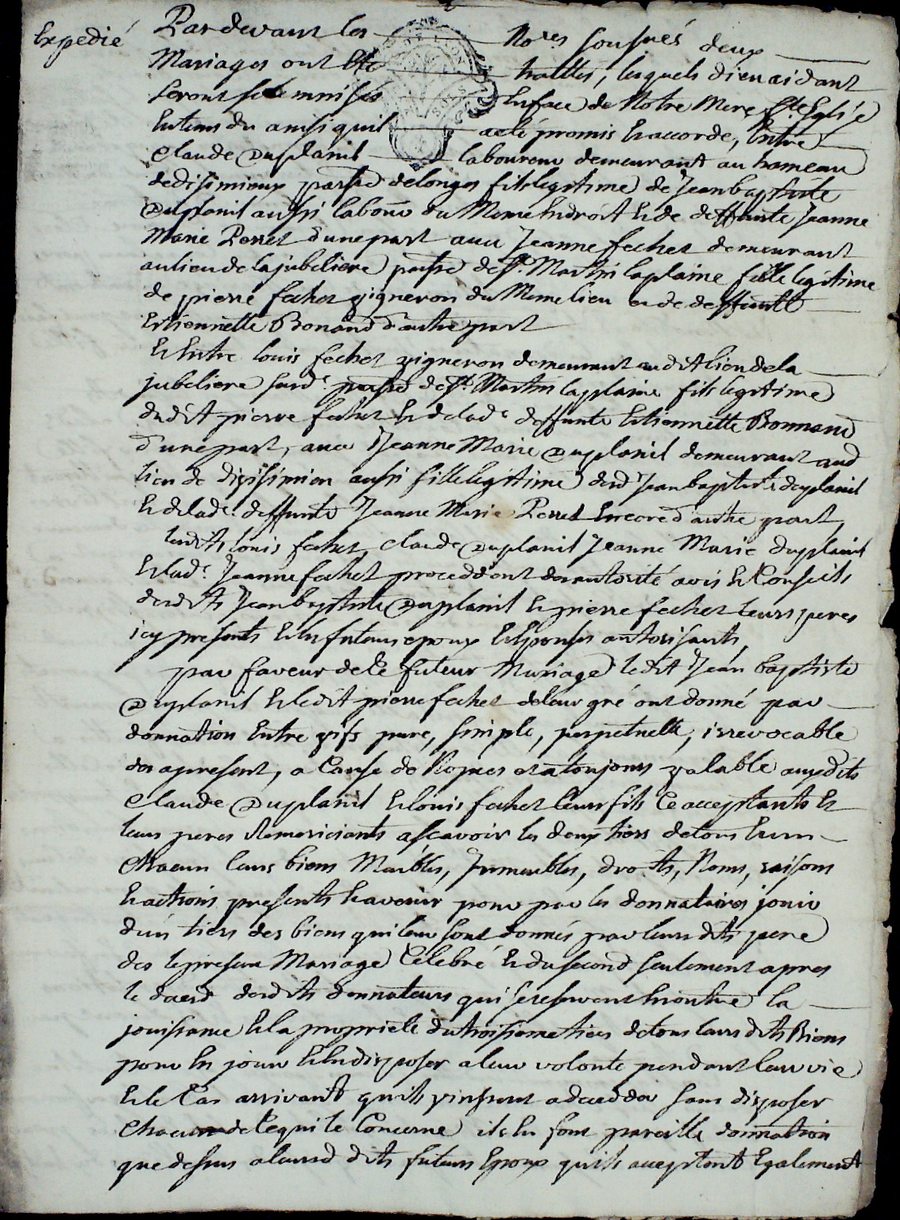 Expedié
Pardevant les No.res sousnés deux
Mariages ont été traittés, lesquels dieu aidant
seront solemnisés en face de Notre Mere Ste Eglise
Entems du ainsi quil a eté promis et accordé, Entre
Claude Duplanil laboureur demeurant au hameau
de disimieux parsse de longes fils legitime de Jean baptiste
Duplanil aussi labour du Meme Endroit et de deffunte Jeanne
Marie Perret d'une part avec Jeanne fechet demeurant
au lieu de la jubeliere parsse de St. Martin laplaine fille legitime
de pierre fechet vigneron du Meme lieu et de deffunte
Etiennette Bonand d'autre part
Et Entre louis fechet vigneron demeurant audit lieu de la
jubeliere surde. parsse de St. Martin laplaine fils legitime
dudit pierre fechet et de lade. deffunte Etiennette Bonnand
d'une part, avec Jeanne Marie Duplanil demeurant aud
lieu de disisimion aussi fille legitime dud Jean baptiste duplanil
Et de lade. deffunte Jeanne Marie Perret Encore d'autre part,
lesdits louis fechet, Claude Duplanil Jeanne Marie duplanil
Et lade. Jeanne fechet proceddant de l'autorité avis et Conseils
desdits Jean baptiste Duplanil et pierre fechet leurs peres
icy presents et les futurs epoux et epouses autorisants
par faveur de Ce futeur Mariage ledit Jean baptiste
Duplanil et ledit pierre fechet de leur gré ont donné par
donnation Entre vifs pure, simple, perpetuelle, irrevocable
des apresent, a Cause de Nopces et a toujours valable auxdits
Claude Duplanil et louis fechet leurs fils Ce acceptants et
leurs peres Remerciants a scavoir les deux tiers de tous Et un
Chacun leurs biens Meubles, Immeubles, droits, Noms, raisons
Et actions presents et avenir pour par les donnataires jouir
d'un tiers des biens qui leur sont donnés par leurs dits pere
des le present Mariage Celebré et du second seulement apres
le deced desdits donnateurs qui se reservent En outre la
jouissance et la proprieté du troisieme tiers de tous leurs dits Biens
pour En jouir et En disposer a leur volonté pendant leur vie
Et le Cas arrivant qu'ils vinssent a decedder sans disposer
Chacun de Ce qui le Concerne ils En font pareille donnation
que dessus a leursd dits futurs Epoux qu'ils acceptent Egalement